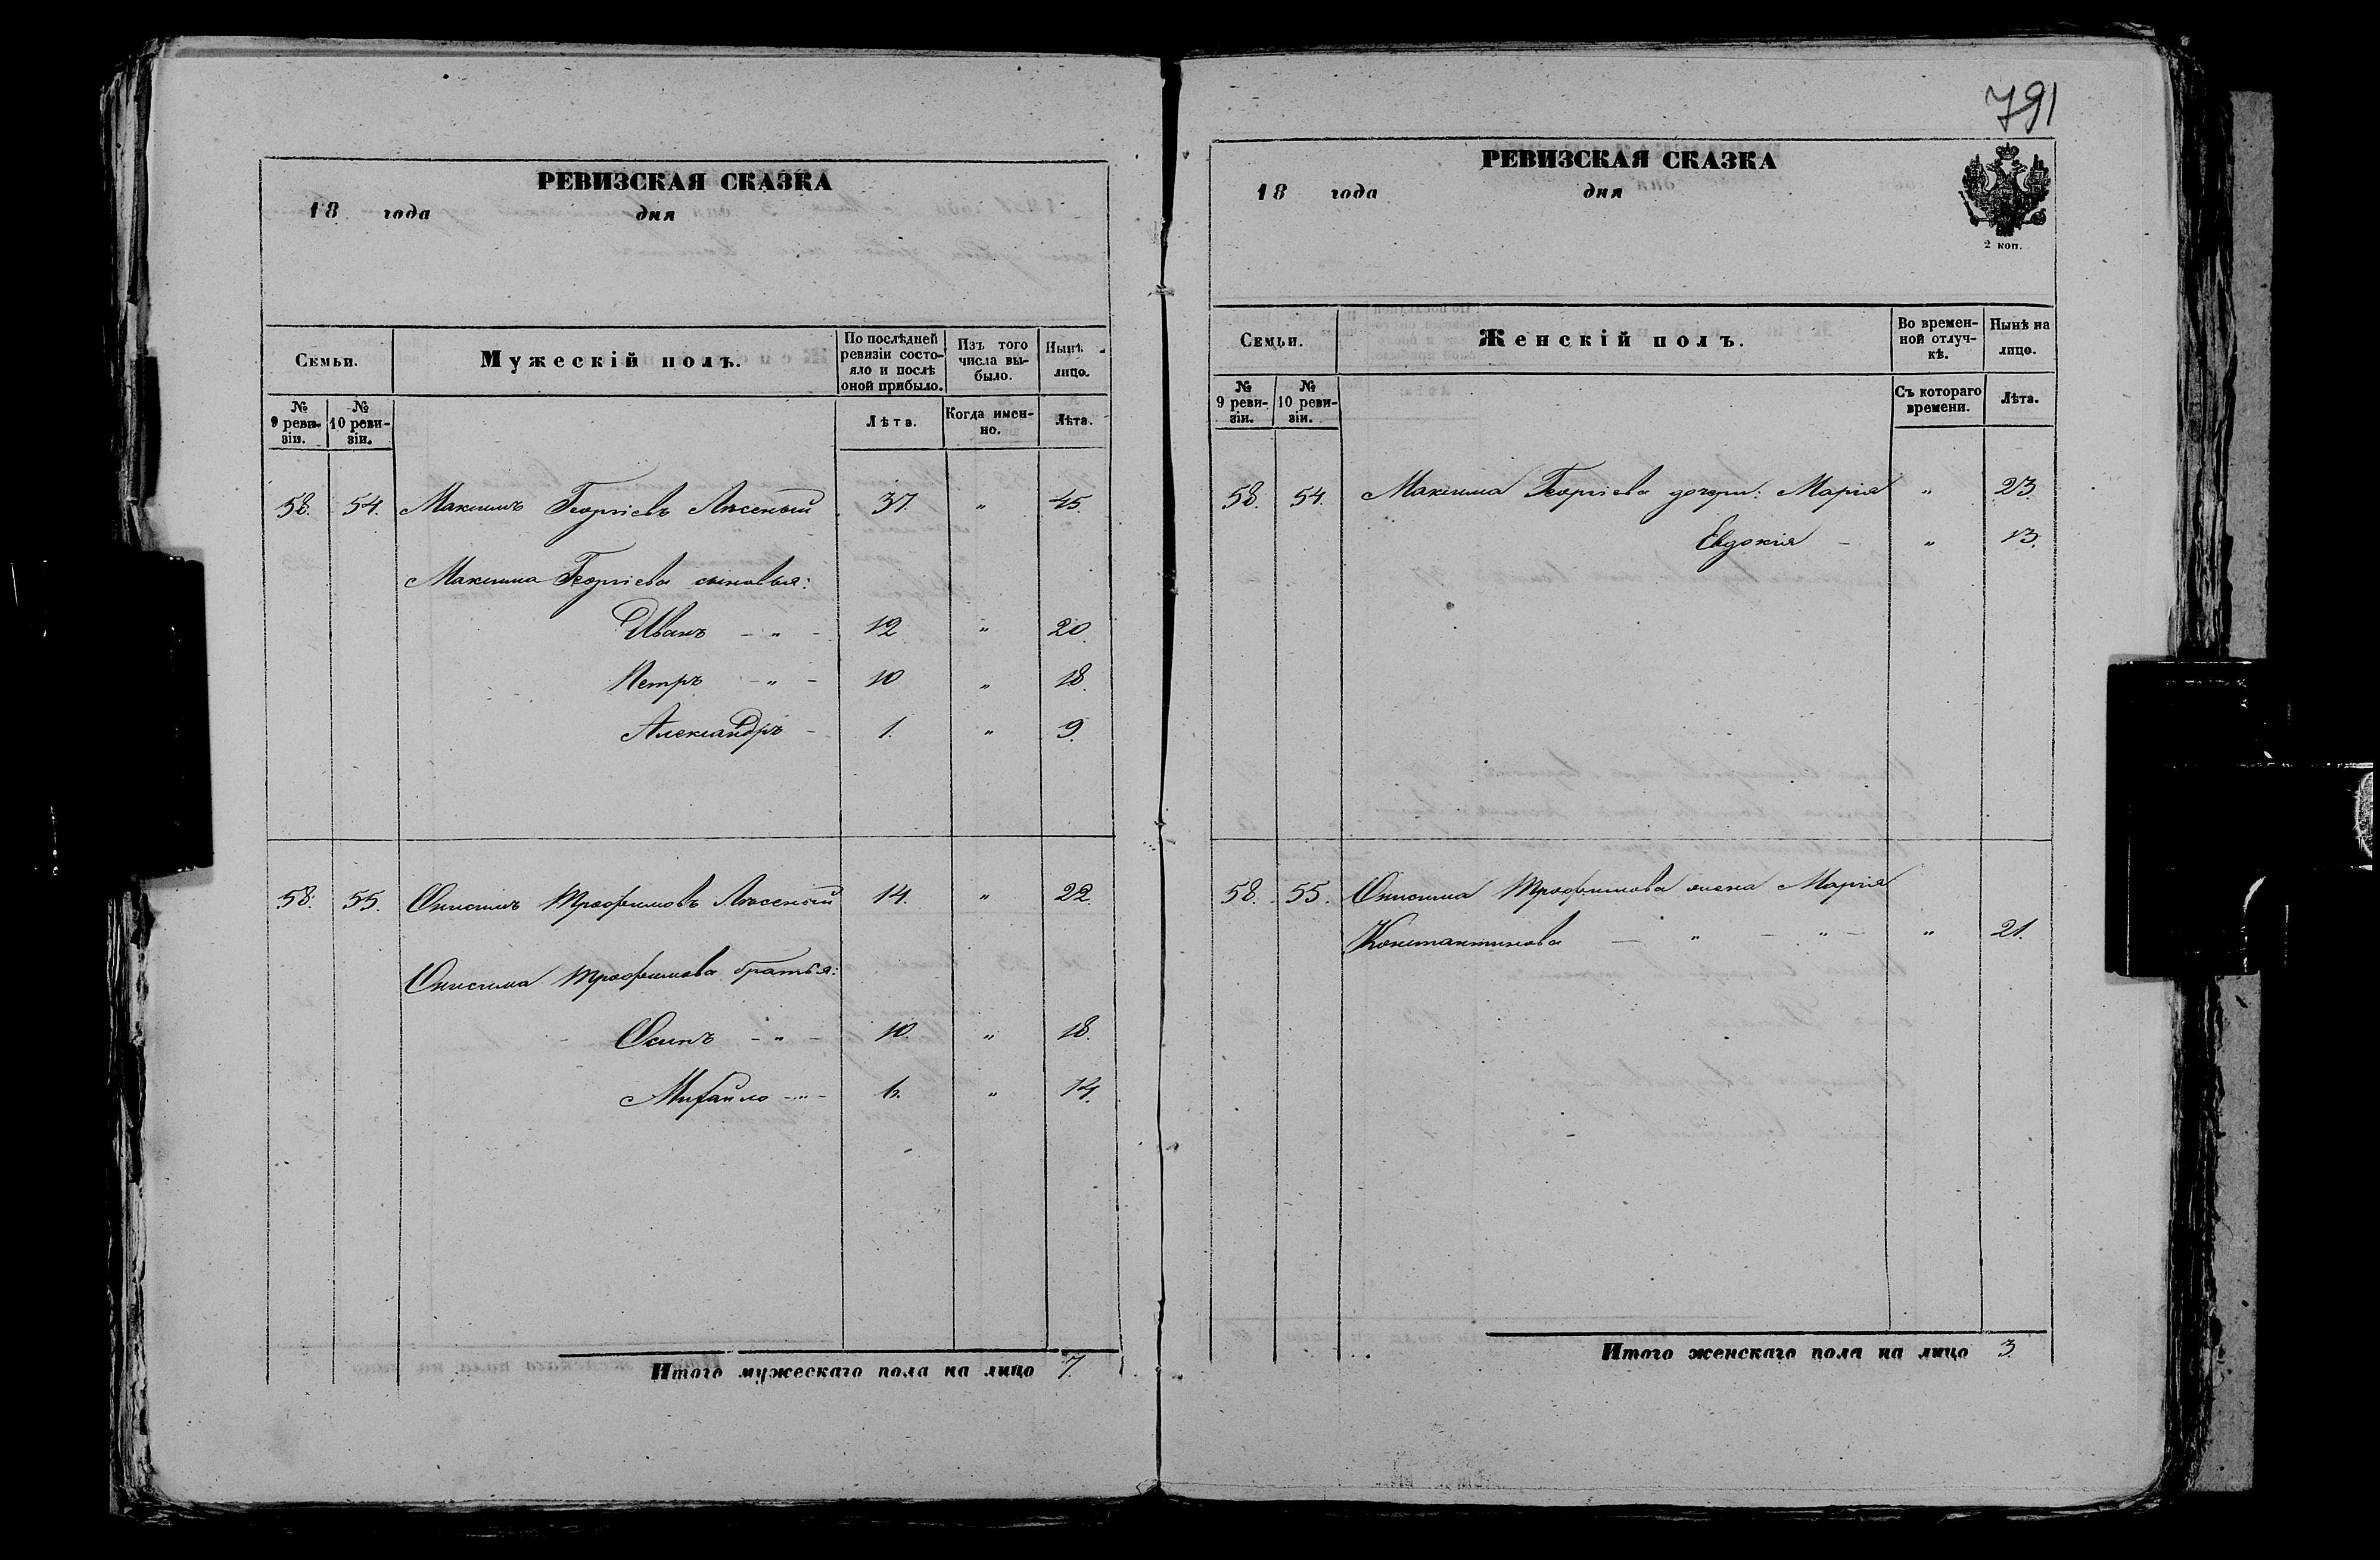 РЕВИЗСКАЯ СКАЗКА
18 года дня
Семьи.
Мужескій полъ.
По послѣдней ревизіи состояло и послѣ оной прибыло.
Изъ того числа выбыло.
Нынѣ лицо.
№ 9 ревизіи.
№ 10 ревизіи.
Лѣта.
Когда именно.
Лѣта.
58. 54. Максимъ Георгіевъ Лѣсеный 37. " 45.
Максима Георгіева сыновья:
Иванъ - " - 12 " 20.
Петръ - " - 10 " 18.
Александръ - 1. " 9.
58. 55. Онисимъ Трофимовъ Лѣсеный 14. " 22.
Онисима Трофимова братья:
Осипъ - " - 10. " 18.
Михайло - " - 6. " 14.
Итого мужескаго пола на лицо 7.
791
РЕВИЗСКАЯ СКАЗКА
18 года дня
2 коп.
Семьи.
Женскій полъ.
Во временной отлучкѣ.
Нынѣ на лицо.
№ 9 ревизіи.
№ 10 ревизіи.
Съ котораго времени.
Лѣта.
58. 54. Максима Георгіева дочери: Марія " 23.
Евдокія - " 13.
58. 55. Онисима Трофимова жена Марія
Константинова - " - " - " 21.
Итого женскаго пола на лицо 3.